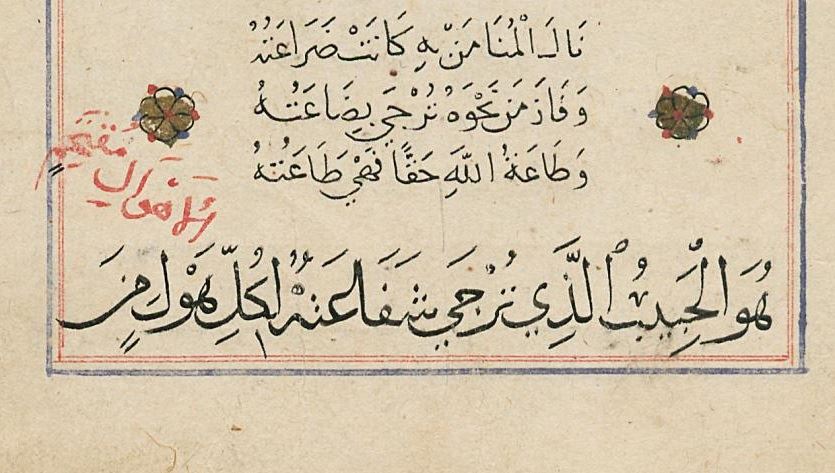 نَالَ الْمُنَا مَنْ بِهِ كَانَتْ ضَرَاعَتُهُ
وَفَازَ مَنْ نَحْوَهُ تُزْجَي بِضَاعَتُهُ
وَطَاعَةُ اللَّهِ حَقًّا فَهْيَ طَاعَتُهُ
هُوَ الْحَبِيبُ الَّذِي تُرْجَي شَفَاعَتُهُ لِكُلِّ هَوْلٍ مِنَ
مُقْتَحِمِ